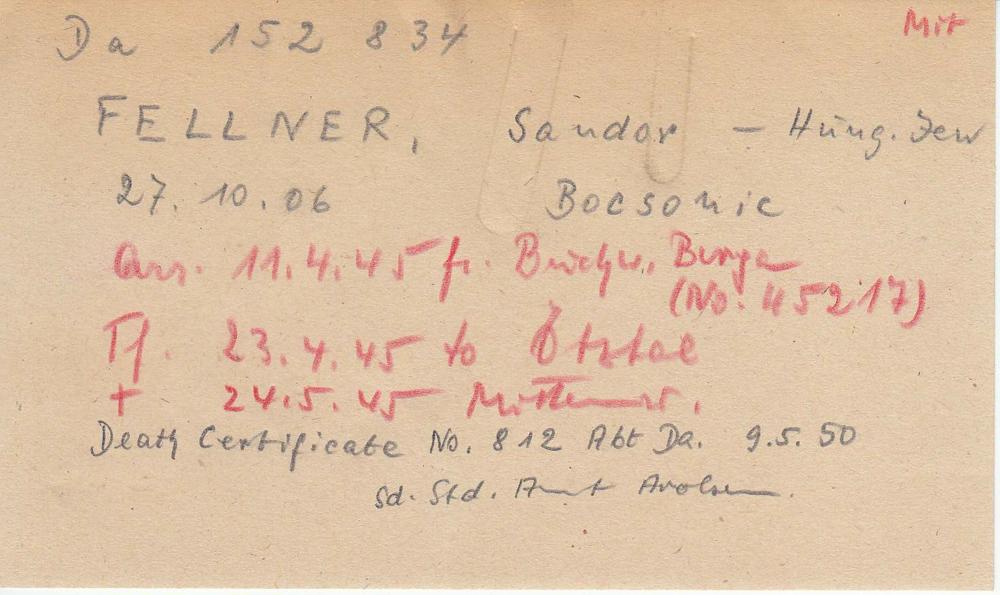 Da 152 834 Mit
FELLNER, Sandor – Hung. Jew
27. 10. 06 Bocsonic
Arr. 11.4.45 fr. Buchw. Berga
(No. 45217)
Tf. 23.4.45 to Ötztal
+ 24.5.45 Mittenw.
Death Certificate No. 812 Abt Da. 9.5.50
Sd. Std. Amt Arolsen.